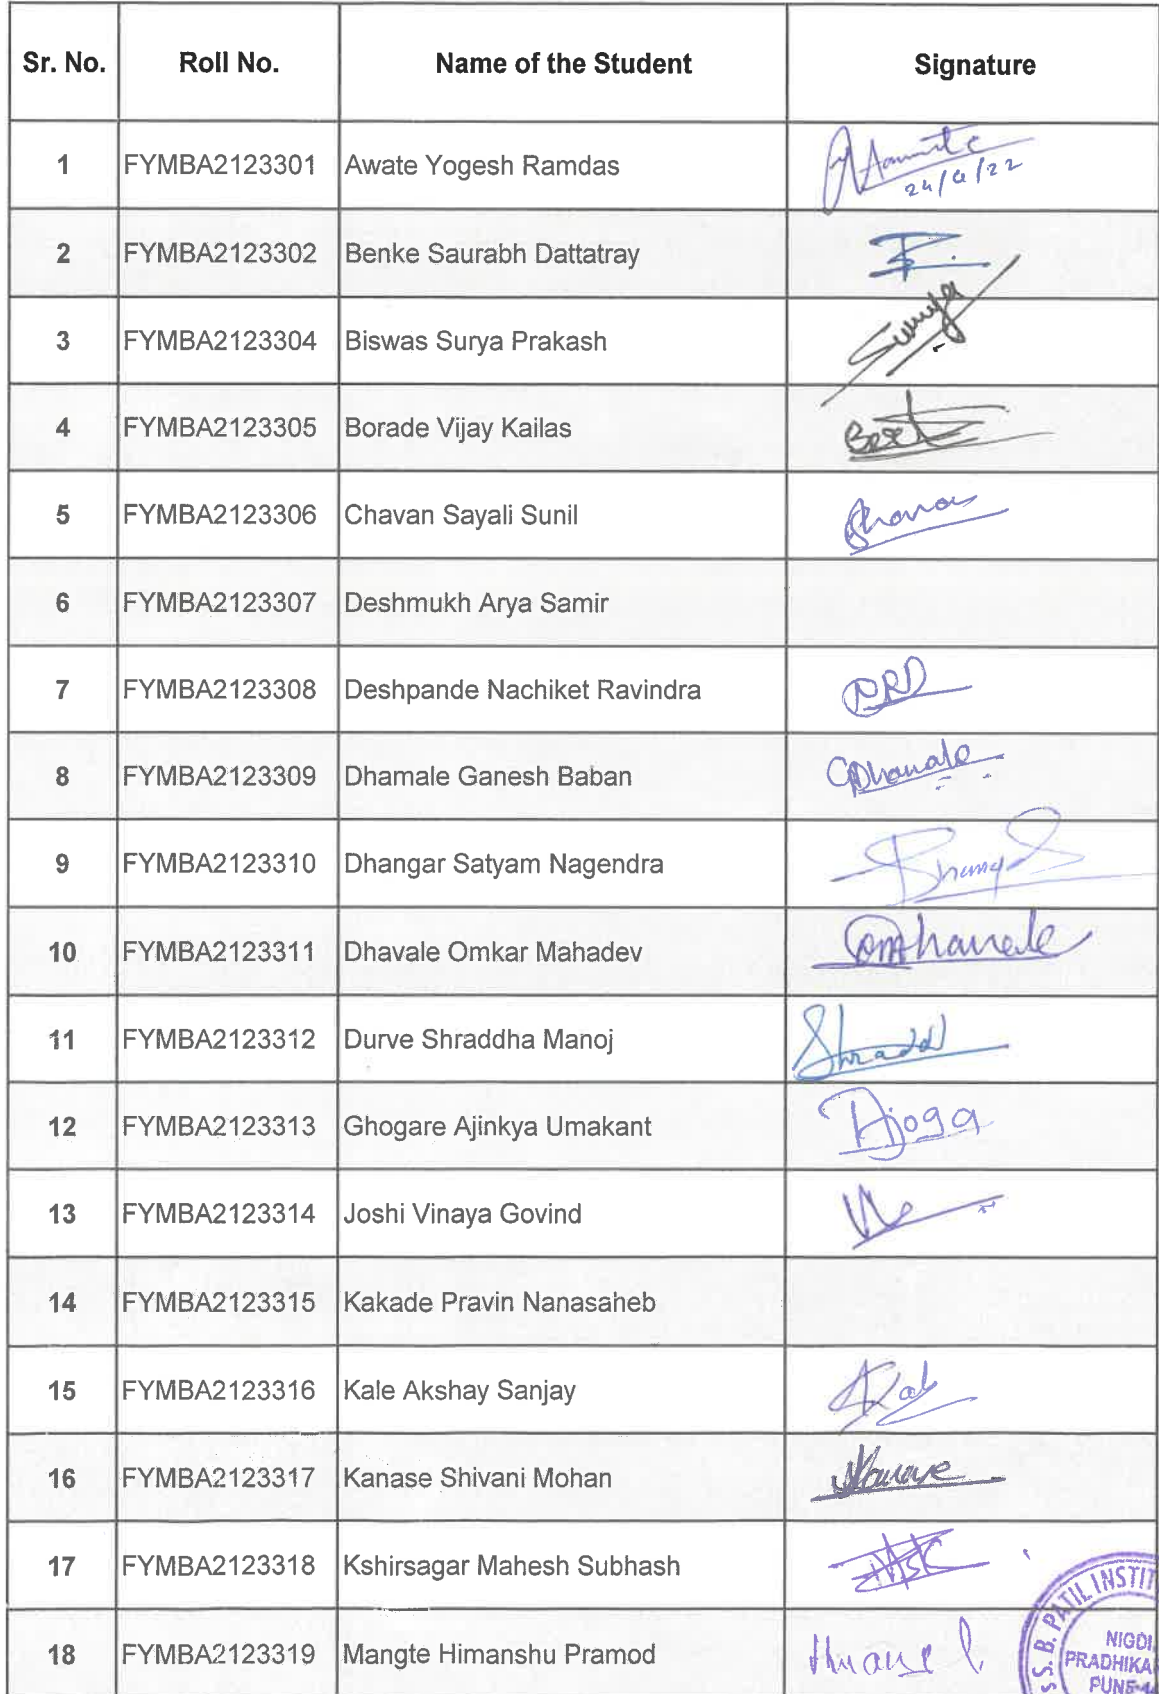 Sr. No. Roll No. Name of the Student Signature
1 FYMBA2123301 Awate Yogesh Ramdas
24/4/22
2 FYMBA2123302 Benke Saurabh Dattatray
3 FYMBA2123304 Biswas Surya Prakash Surya
4 FYMBA2123305 Borade Vijay Kailas
5 FYMBA2123306 Chavan Sayali Sunil
6 FYMBA2123307 Deshmukh Arya Samir
7 FYMBA2123308 Deshpande Nachiket Ravindra
8 FYMBA2123309 Dhamale Ganesh Baban
9 FYMBA2123310 Dhangar Satyam Nagendra
10 FYMBA2123311 Dhavale Omkar Mahadev
11 FYMBA2123312 Durve Shraddha Manoj Shradd
12 FYMBA2123313 Ghogare Ajinkya Umakant
13 FYMBA2123314 Joshi Vinaya Govind
14 FYMBA2123315 Kakade Pravin Nanasaheb
15 FYMBA2123316 Kale Akshay Sanjay
16 FYMBA2123317 Kanase Shivani Mohan
17 FYMBA2123318 Kshirsagar Mahesh Subhash
18 FYMBA2123319 Mangte Himanshu Pramod
S. B. PATIL INSTIT
NIGDI
PRADHIKA
PUNE-4